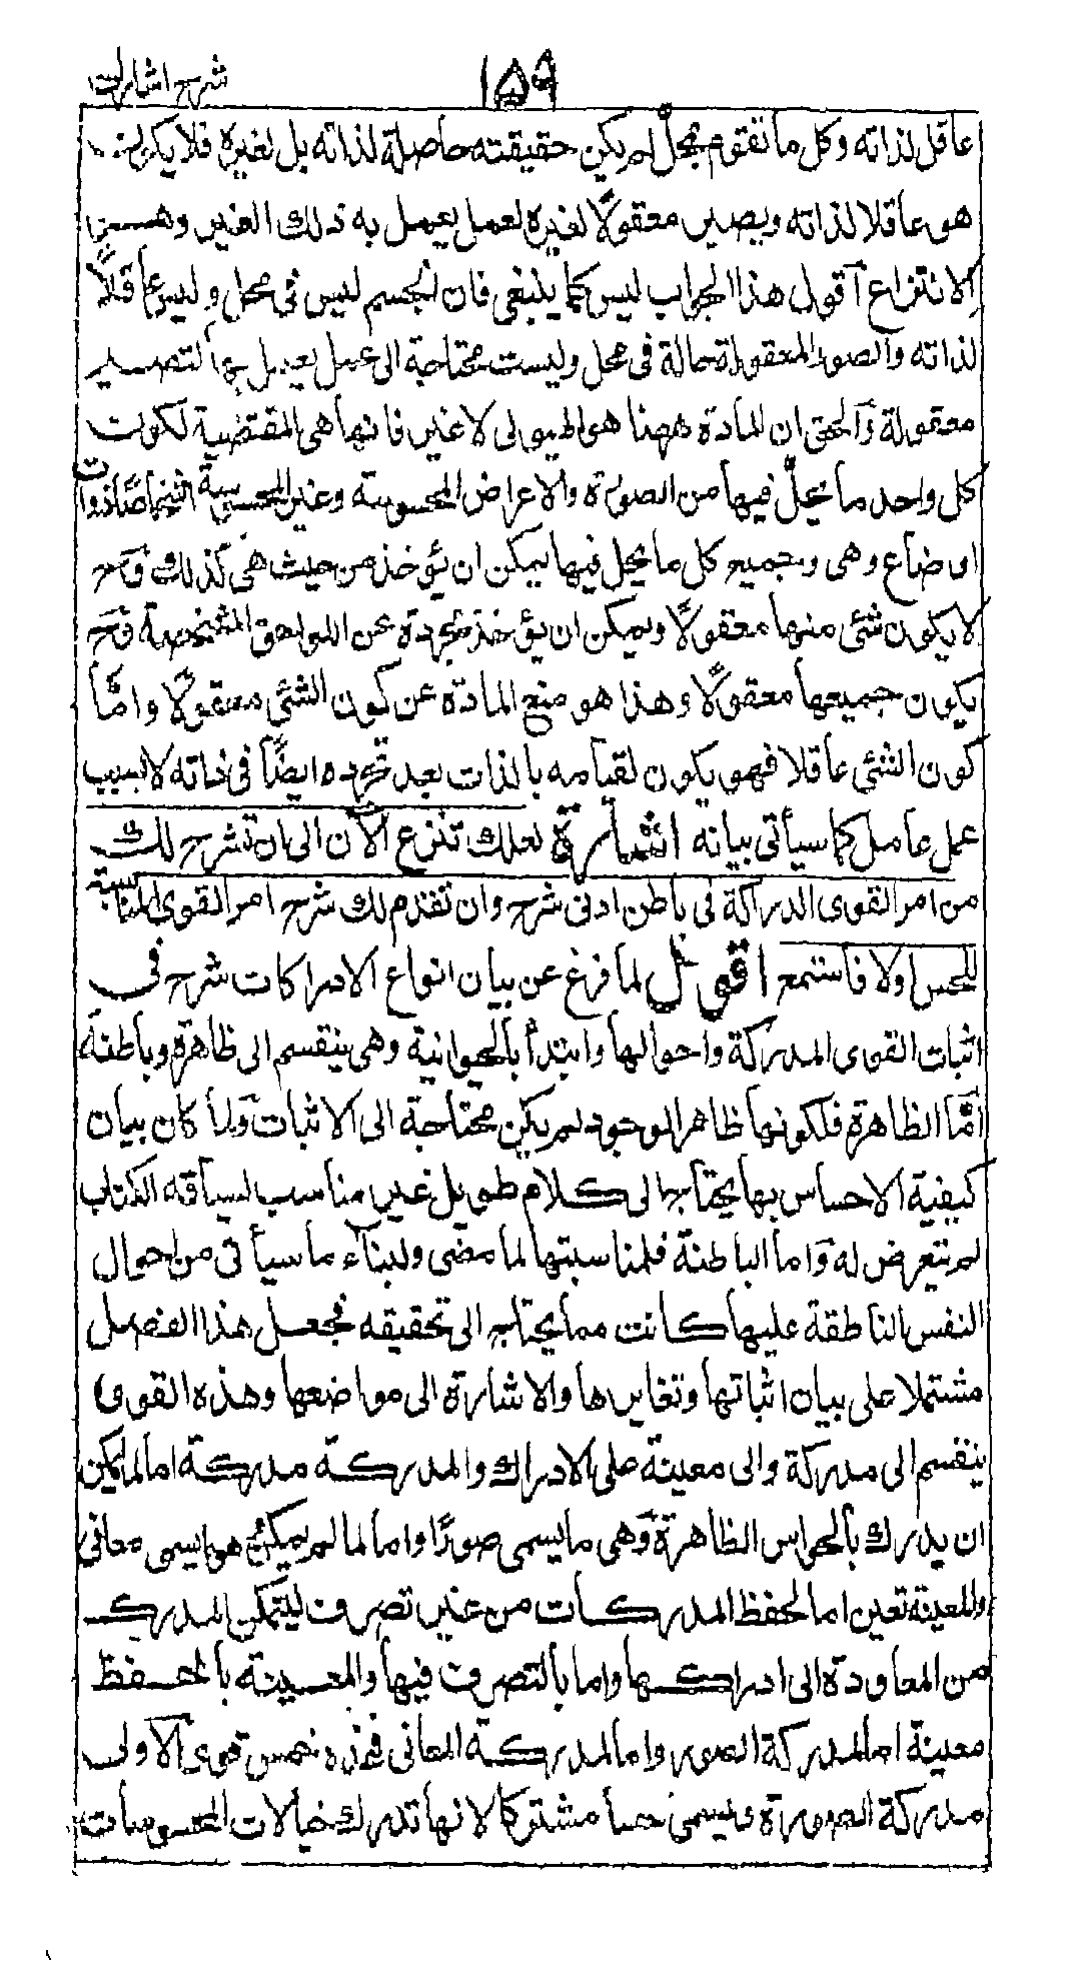 شرح اشارات
۱۵۹
عاقل لذاته وكل ما تقوم بمحل لم يكن حقيقته حاصلة لذاته بل لغيره فلا يكون
هو عاقلا لذاته ويصير معقولًا لغيره لعمل يعمل به ذلك الغير وهو
الانتزاع آقول هذا الجواب ليس كما ينبغى فان الجسم ليس فى محل وليس عاقلًا
لذاته والصور المعقولة حالة فى محل وليست محتاجة الى عمل يعمل بها لتصير
معقولة وَالحق ان المادة ههنا هو الهيولى لا غير فانها هى المقتضية لكون
كل واحد مما يحلّ فيها من الصورة والاعراض المحسوسة وغير المحسوسة اشخاصًا ذوات
اوضاع وهى وجميع كل ما يحل فيها يمكن ان يؤخذ من حيث هى كذلك وَح
لا يكون شئى منها معقولًا ويمكن ان يؤخذ مجردة عن اللواحق المشخصة وَح
يكون جميعها معقولًا وهذا هو منع المادة عن كون الشئى معقولًا وامّا
كون الشئى عاقلا فهو يكون لقيامه بالذات بعد تجرده ايضًا فى ذاته لا بسبب
عمل عامل كما سيأتى بيانه اشارة لعلك تنزع الآن الى ان تشرح لك
من امر القوى الدراكة فى باطن ادنى شرح وان تقدم لك شرح امر القوى المناسبة
للحس اولا فاستمع اقول لما فرغ عن بيان انواع الادراكات شرح فى
اثبات القوى المدركة واحوالها وابتدأ بالحيوانية وهى ينقسم الى ظاهرة وباطنة
امّا الظاهرة فلكونها ظاهر الوجود لم يكن محتاجة الى الاثبات وَلما كان بيان
كيفية الاحساس بها يحتاج الى كلام طويل غير مناسب لسياقه الكتاب
لم يتعرض له وَاما الباطنة فلمناسبتها لما مضى ولبناء ما سيأتى من احوال
النفس الناطقة عليها كانت مما يحتاج الى تحقيقه فجعل هذا الفصل
مشتملا على بيان اثباتها وتغايرها والاشارة الى مواضعها وهذه القوى
ينقسم الى مدركة والى معينة على الادراك والمدركة مدركة اما لما يمكن
ان يدرك بالحواس الظاهرة وَهى ما يسمى صورًا واما لما لم يمكن وهو ما يسمى معانى
والمعينة تعين اما لحفظ المدركات من غير تصرف ليتمكن المدرك
من المعاودة الى ادراكها واما بالتصرف فيها والمعينة بالحفظ
معينة اما لمدركة الصور واما لمدركة المعانى فهذه خمس قوى الاولى
مدركة الصورة ويسمى حسا مشتركا لانها تدرك خيالات المحسوسات